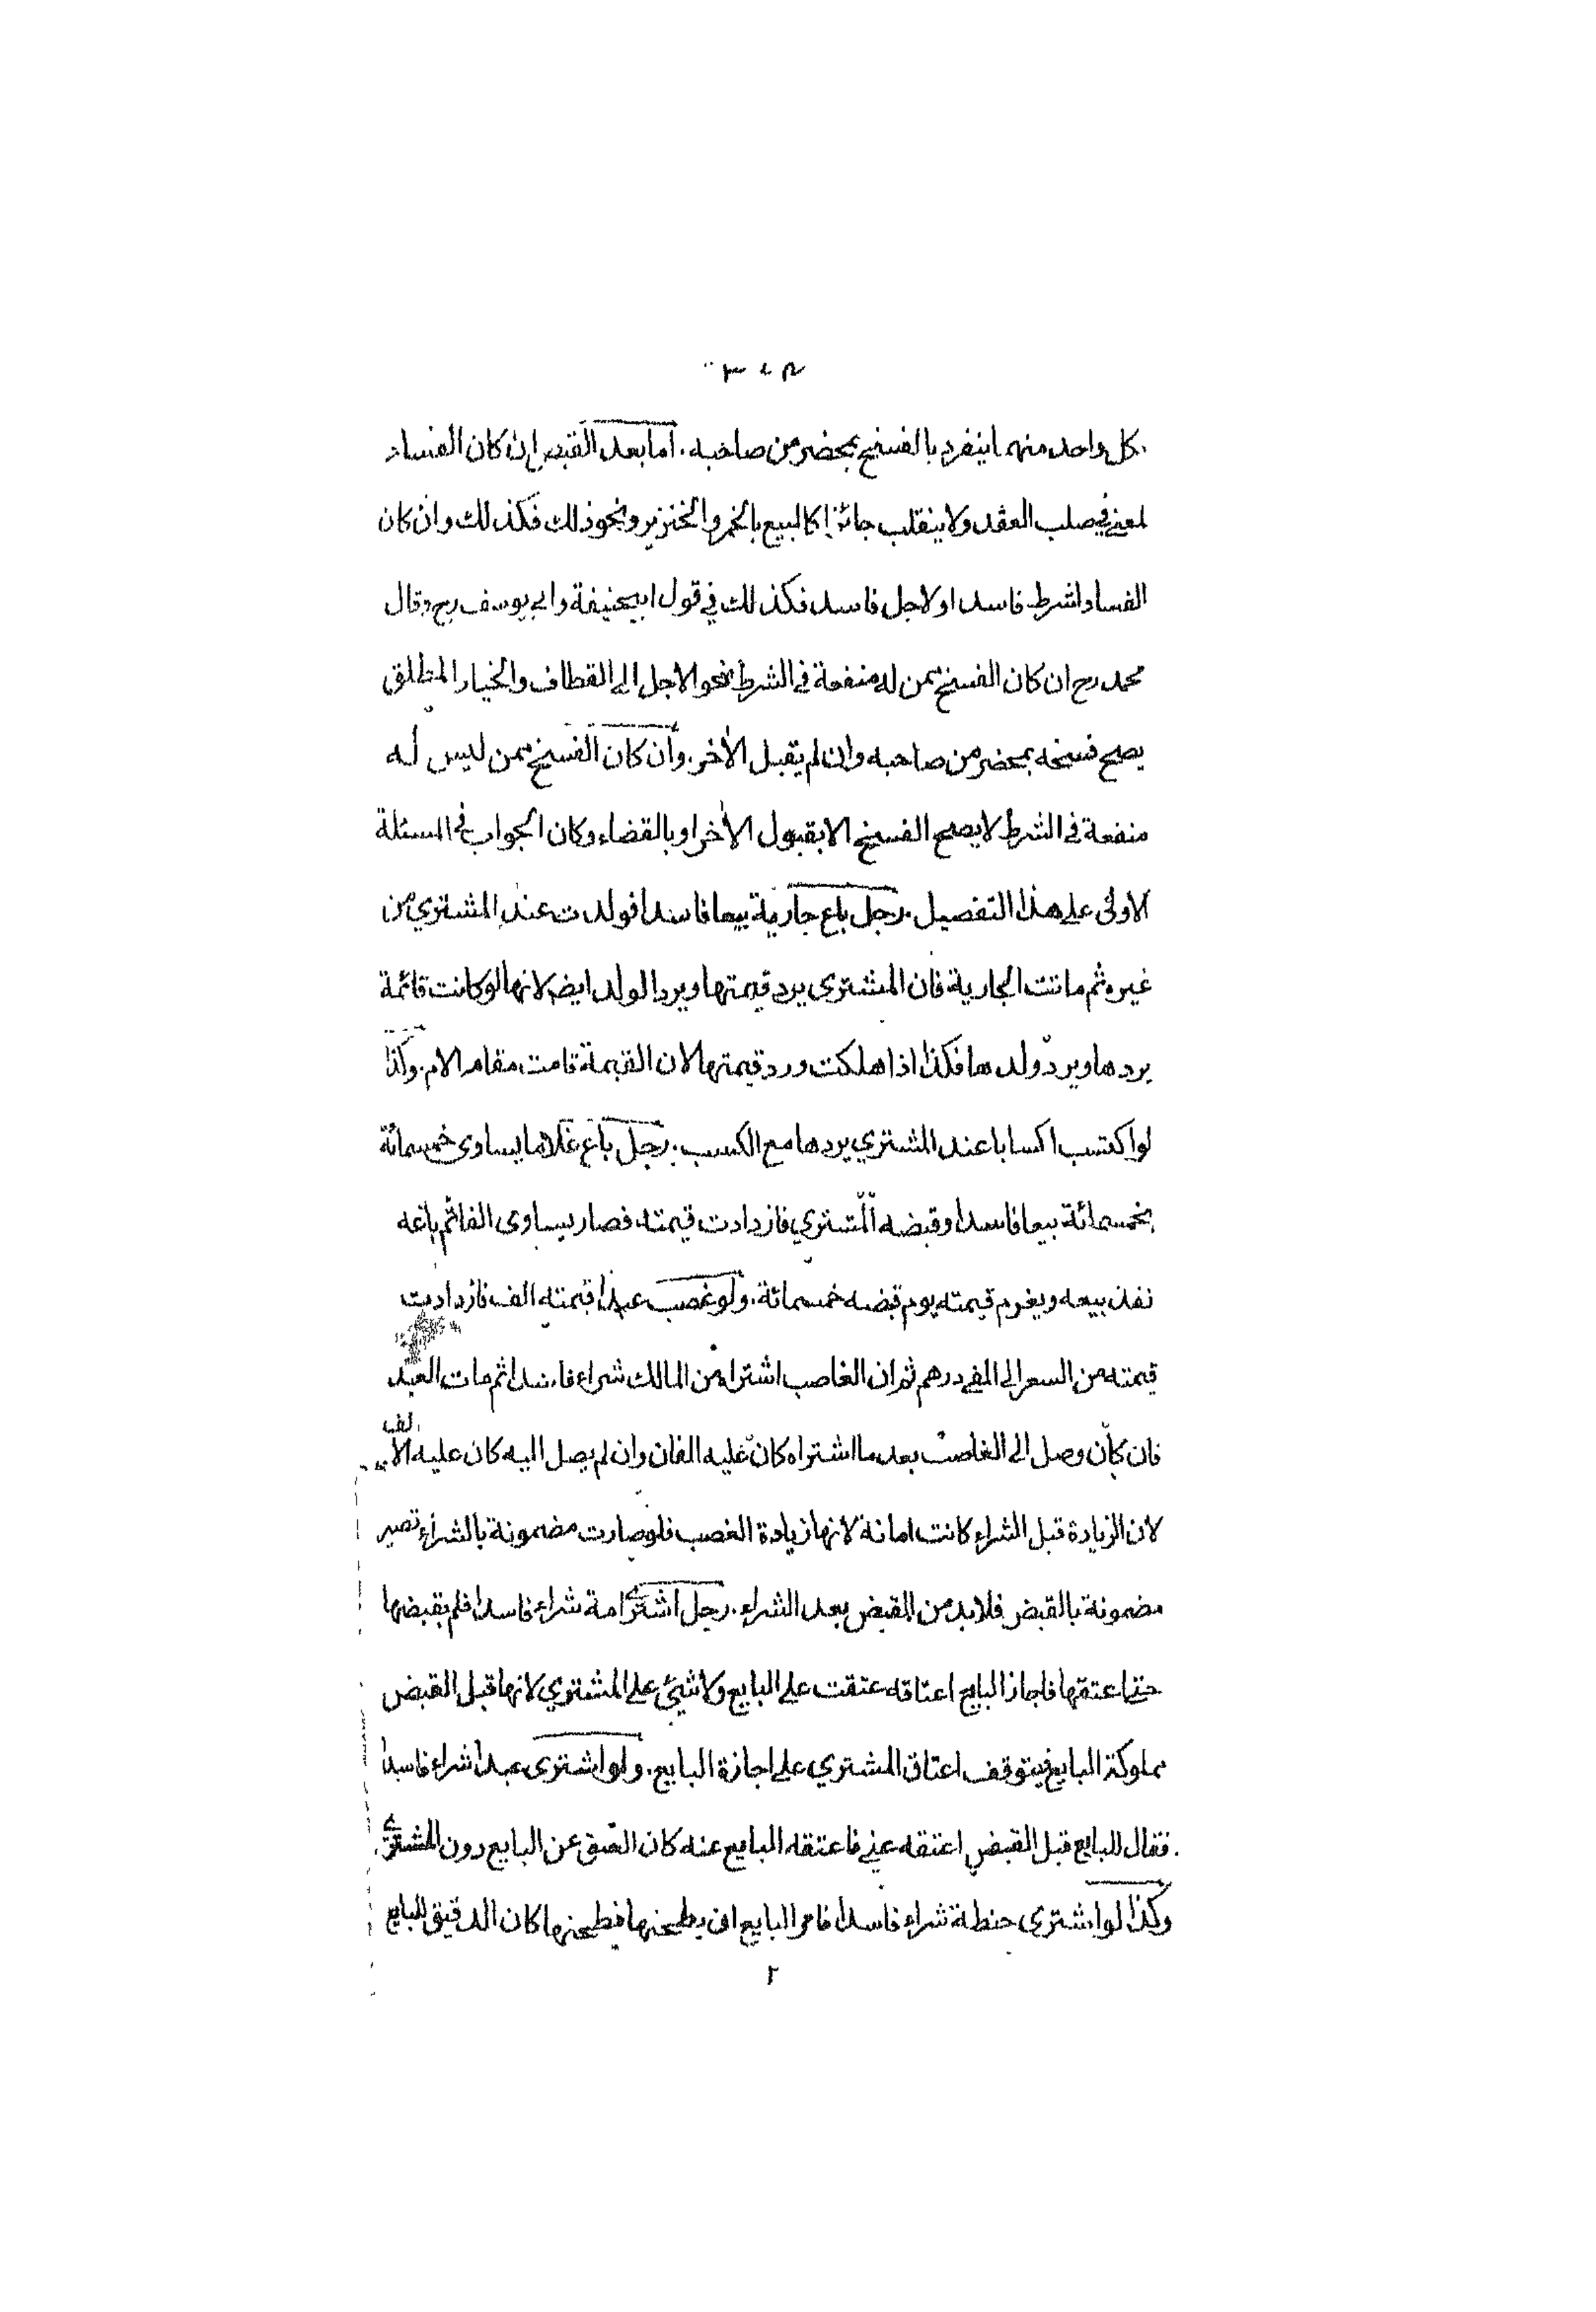 كل واحد منهما ينفرد بالفسخ بمحضر من صاحبه. اما بعد القبض ان كان الفساد
لمعنى في صلب العقد ولا ينقلب جائزا كالبيع بالخمر والخنزير ونحو ذلك فكذلك وان كان
الفساد لشرط فاسد او لاجل فاسد فكذلك في قول ابيحنيفة وابي يوسف رح وقال
محمد رح ان كان الفسخ ممن له منفعة في الشرط نحو الاجل الى القطاف والخيار المطلق
يصح فسخه بمحضر من صاحبه وان لم يقبل الآخر. وان كان الفسخ ممن ليس له
منفعة في الشرط لا يصح الفسخ الا بقبول الآخر او بالقضاء وكان الجواب في المسئلة
الاولى على هذا التفصيل. رجل باع جارية بيعا فاسدا فولدت عند المشتري من
غيره ثم ماتت الجارية فان المشتري يرد قيمتها ويرد الولد ايضا لانها لو كانت قائمة
يردها ويرد ولدها فكذا اذا هلكت ورد قيمتها لان القيمة قامت مقام الام. وكذا
لو اكتسب اكسابا عند المشتري يردها مع الكسب. رجل باع غلاما يساوى خمسمائة
بخمسمائة بيعا فاسدا وقبضه المشتري فازدادت قيمته فصار يساوى الفا ثم باعه
نفذ بيعه ويغرم قيمته يوم قبضه خمسمائة. ولو غصب عبدا قيمته الف فازدادت
قيمته من السعر الى الفي درهم ثم ان الغاصب اشتراه من المالك شراء فاسدا ثم مات العبد
فان كان وصل الى الغاصب بعد ما اشتراه كان عليه الفان وان لم يصل اليه كان عليه الالف
لان الزيادة قبل الشراء كانت امانة لانها زيادة الغصب فلو صارت مضمونة بالشراء تصير
مضمونة بالقبض فلا بد من القبض بعد الشراء. رجل اشترى امة شراء فاسدا فلم يقبضها
حتى اعتقها فاجاز البايع اعتاقه عتقت على البايع ولا شئ على المشتري لانها قبل القبض
مملوكة البايع فيتوقف اعتاق المشتري على اجازة البايع. ولو اشترى عبدا شراء فاسدا
فقال للبايع قبل القبض اعتقه عني فاعتقه البايع عنه كان العتق عن البايع دون المشترى
وكذا لو اشترى حنطة شراء فاسدا فامر البايع ان يطحنها فطحنها كان الدقيق للبايع
٢